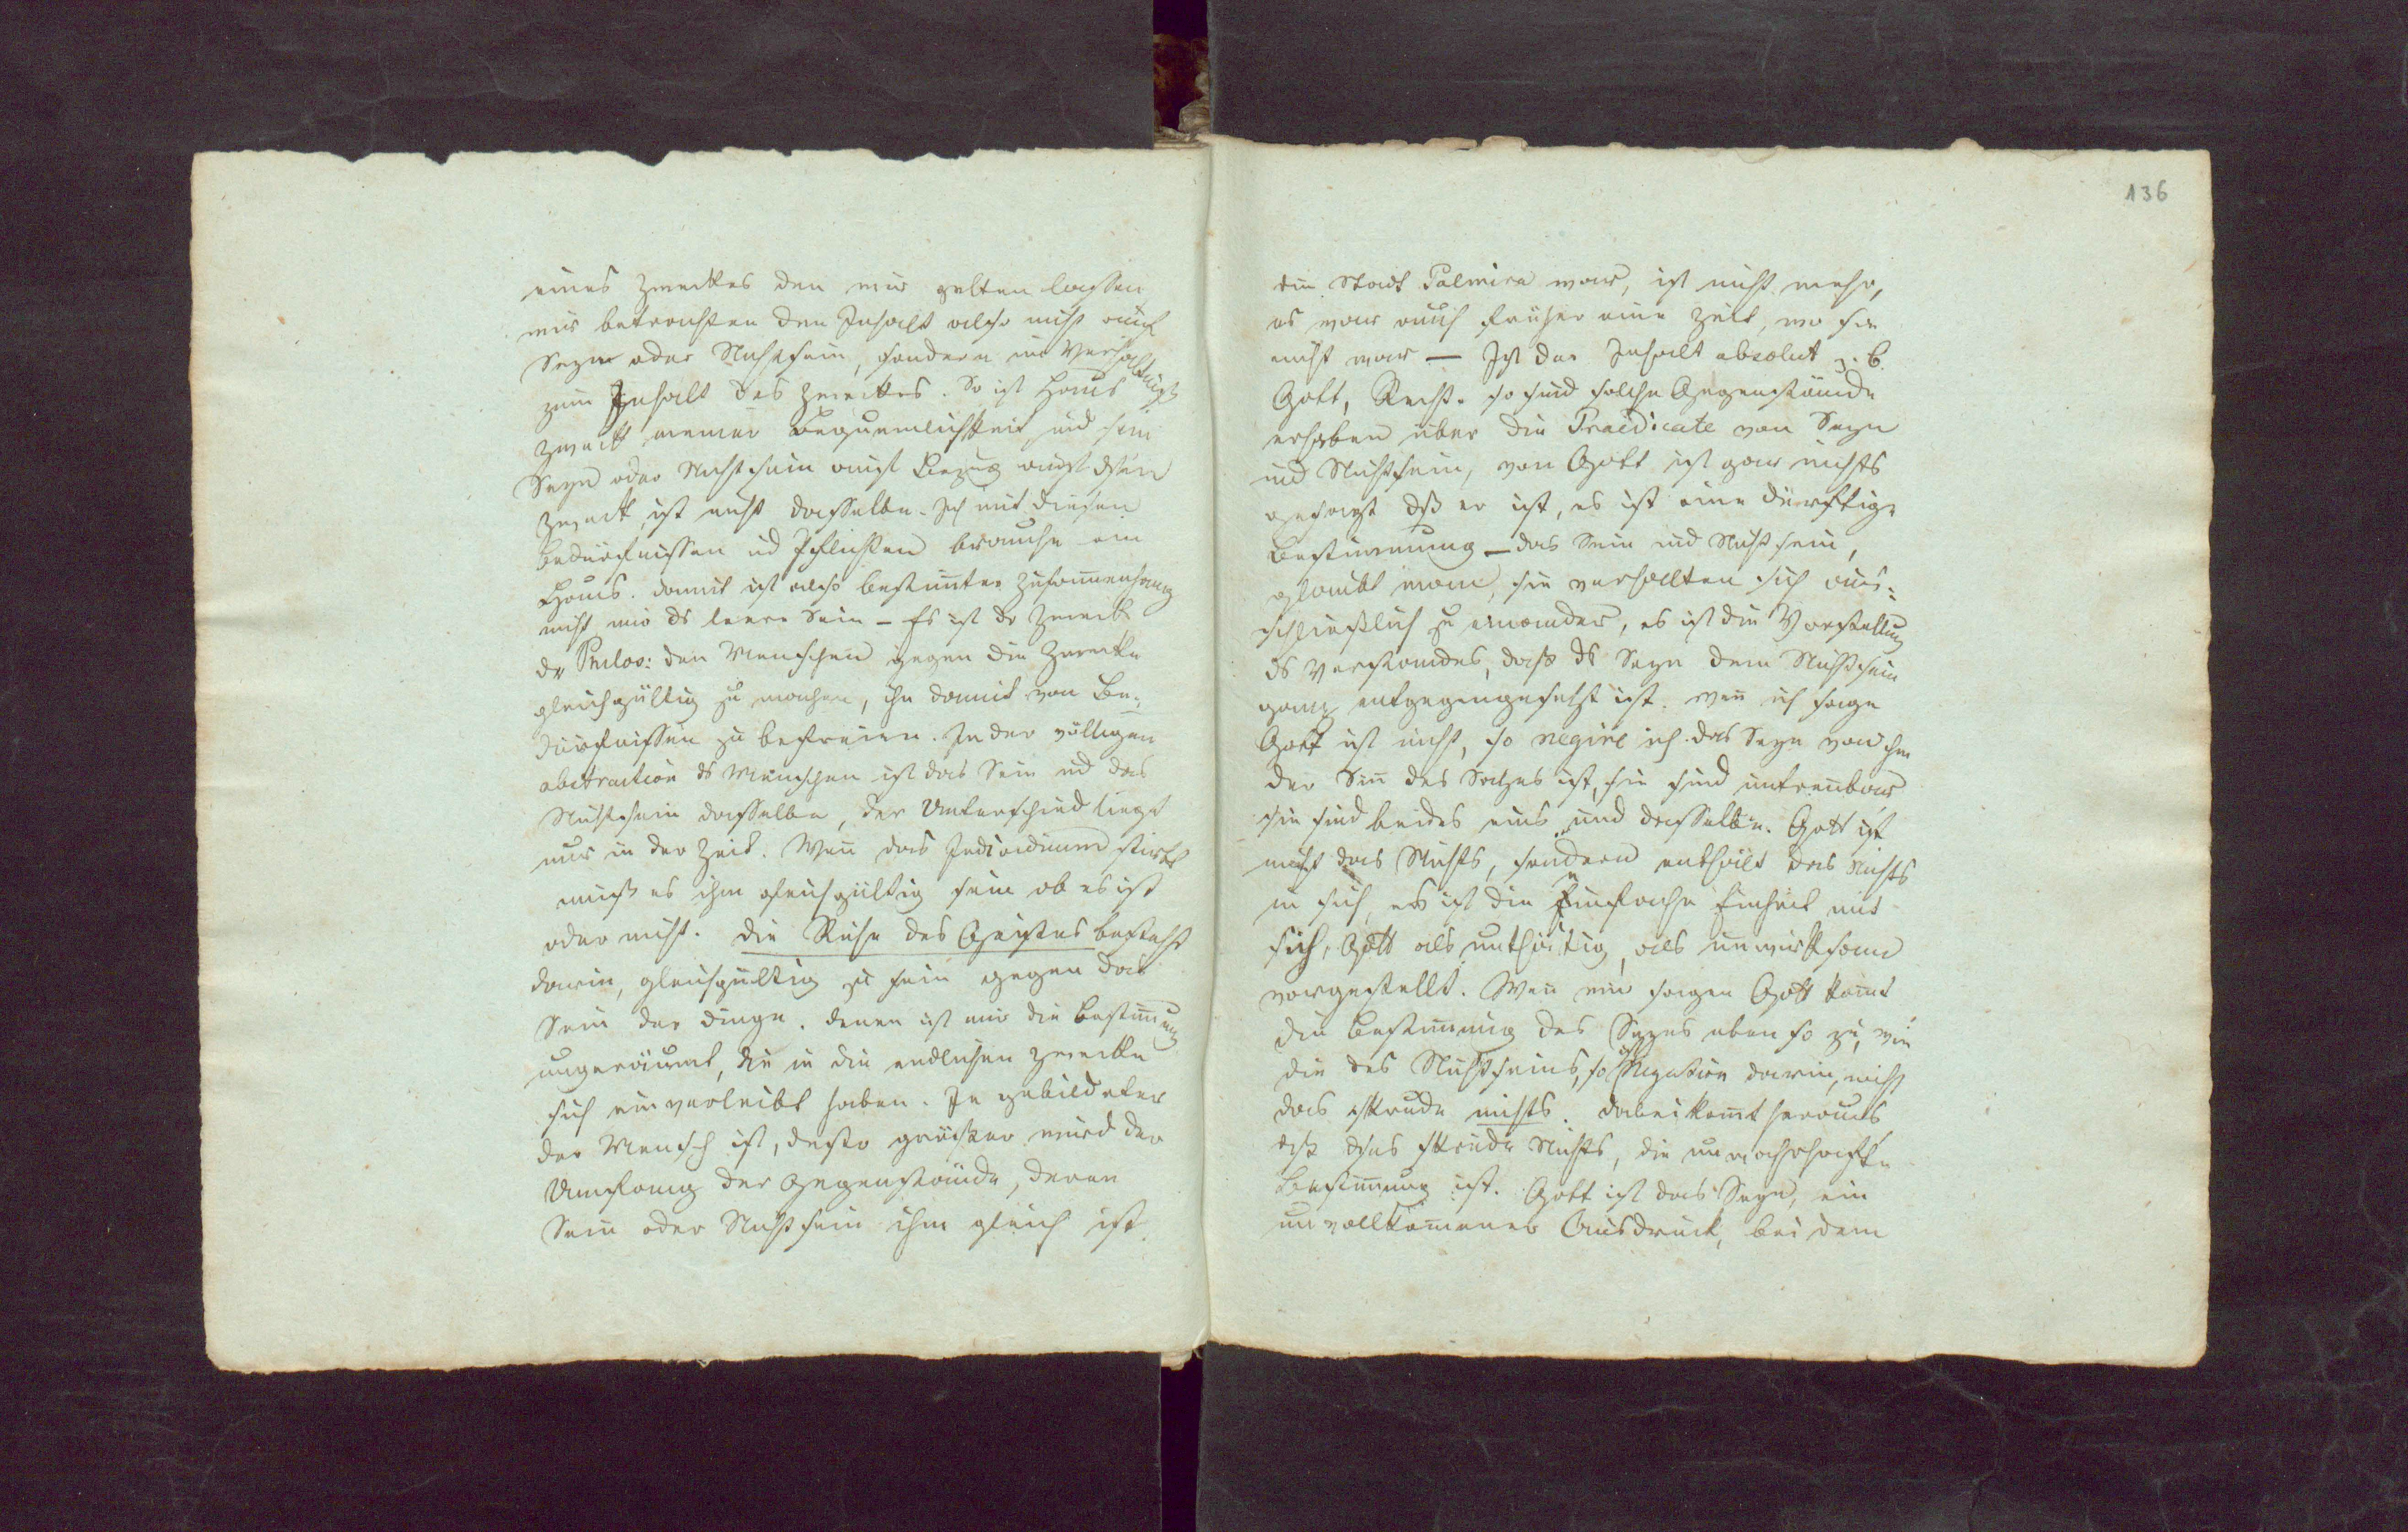 eines Zweckes den wir gelten lassen
wir betrachten den Inhalt also nicht auf
Seyn oder Nichtsein, sondern im Verhältniß
zum Inhalt des Zweckes. So ist Haus
Zweck meiner Bequemlichkeit und sein
Seyn oder Nichtsein auf Bezug auf den
Zweck, ist nicht dasselbe. Ich mit diesen
Bedürfnissen ud Pflichten brauche ein
Haus. damit ist also bestim̄ter Zusam̄enhang
nicht nur ds leere Sein – Es ist dr Zweck
dr Philos: den Menschen gegen die Zwecke
gleichgültig zu machen, ihn damit von Be-
dürfnissen zu befreien. In der völligen
abstraction ds Menschen ist das Sein ud das
Nichtsein dasselbe, der Unterschied liegt
nur in der Zeit. Wen̄ das Individuum stirbt
muß es ihm gleichgültig sein ob es ist
oder nicht. Die Ruhe des Geistes besteht
darin, gleichgültig zu sein gegen das
Sein der Dinge. denen ist nur die Bestim̄ung
ungeräumt, die in die endlichen Zwecke
sich einverleibt haben. Je gebildeter
der Mensch ist, desto größer wird der
Umfang der Gegenstände, deren
Sein oder Nichtsein ihm gleich ist.
136
die Stadt Palmira war, ist nicht mehr,
es war auch früher eine Zeit, wo sie
nicht war – Ist der Inhalt absolut z. B.
Gott, Recht. so sind solche Gegenstände
erhaben über die Praedicate von Seyn
und Nichtsein, von Gott ist gar nichts
gesagt dß er ist, es ist eine dürftige
Bestimmung – das Sein und Nichtsein,
glaubt man, sie verhalten sich aus-
schließlich zu einander, es ist die Vorstellung
ds Verstandes, daß ds Seyn dem Nichtsein
ganz entgegengesetzt ist. wen̄ ich sage
Gott ist nicht, so negire ich das Seyn von ihm
der Sin̄ des Satzes ist, sie sind untren̄bar
sie sind beides eins und dasselbe. Gott ist
nicht das Nichts, sondern enthält das Nichts
in sich, es ist die Einfache Einheit mit
sich, Gott als unthätig, als unwirksam
vorgestellt. Wen̄ wir sagen Gott kom̄t
die Bestim̄ung des Seyns eben so zu, wie
die des Nichtseins, so ist Negation darin, nicht
das krude nichts. dabei kom̄t heraus
dß das krude Nichts, die unwahrhafte
Bestim̄ung ist. Gott ist das Seyn, ein
unvollkom̄ener Ausdruck, bei dem